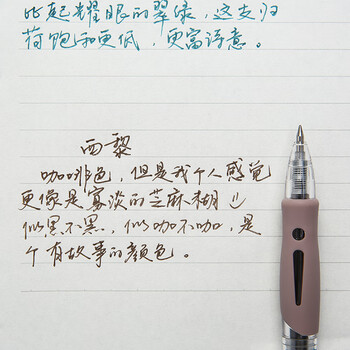 比起耀眼的翠绿，这支归
荷饱和更低，更富诗意。
西黎
咖啡色，但是我个人感觉
更像是寡淡的芝麻糊
似黑不黑，似咖不咖，是
个有故事的颜色。